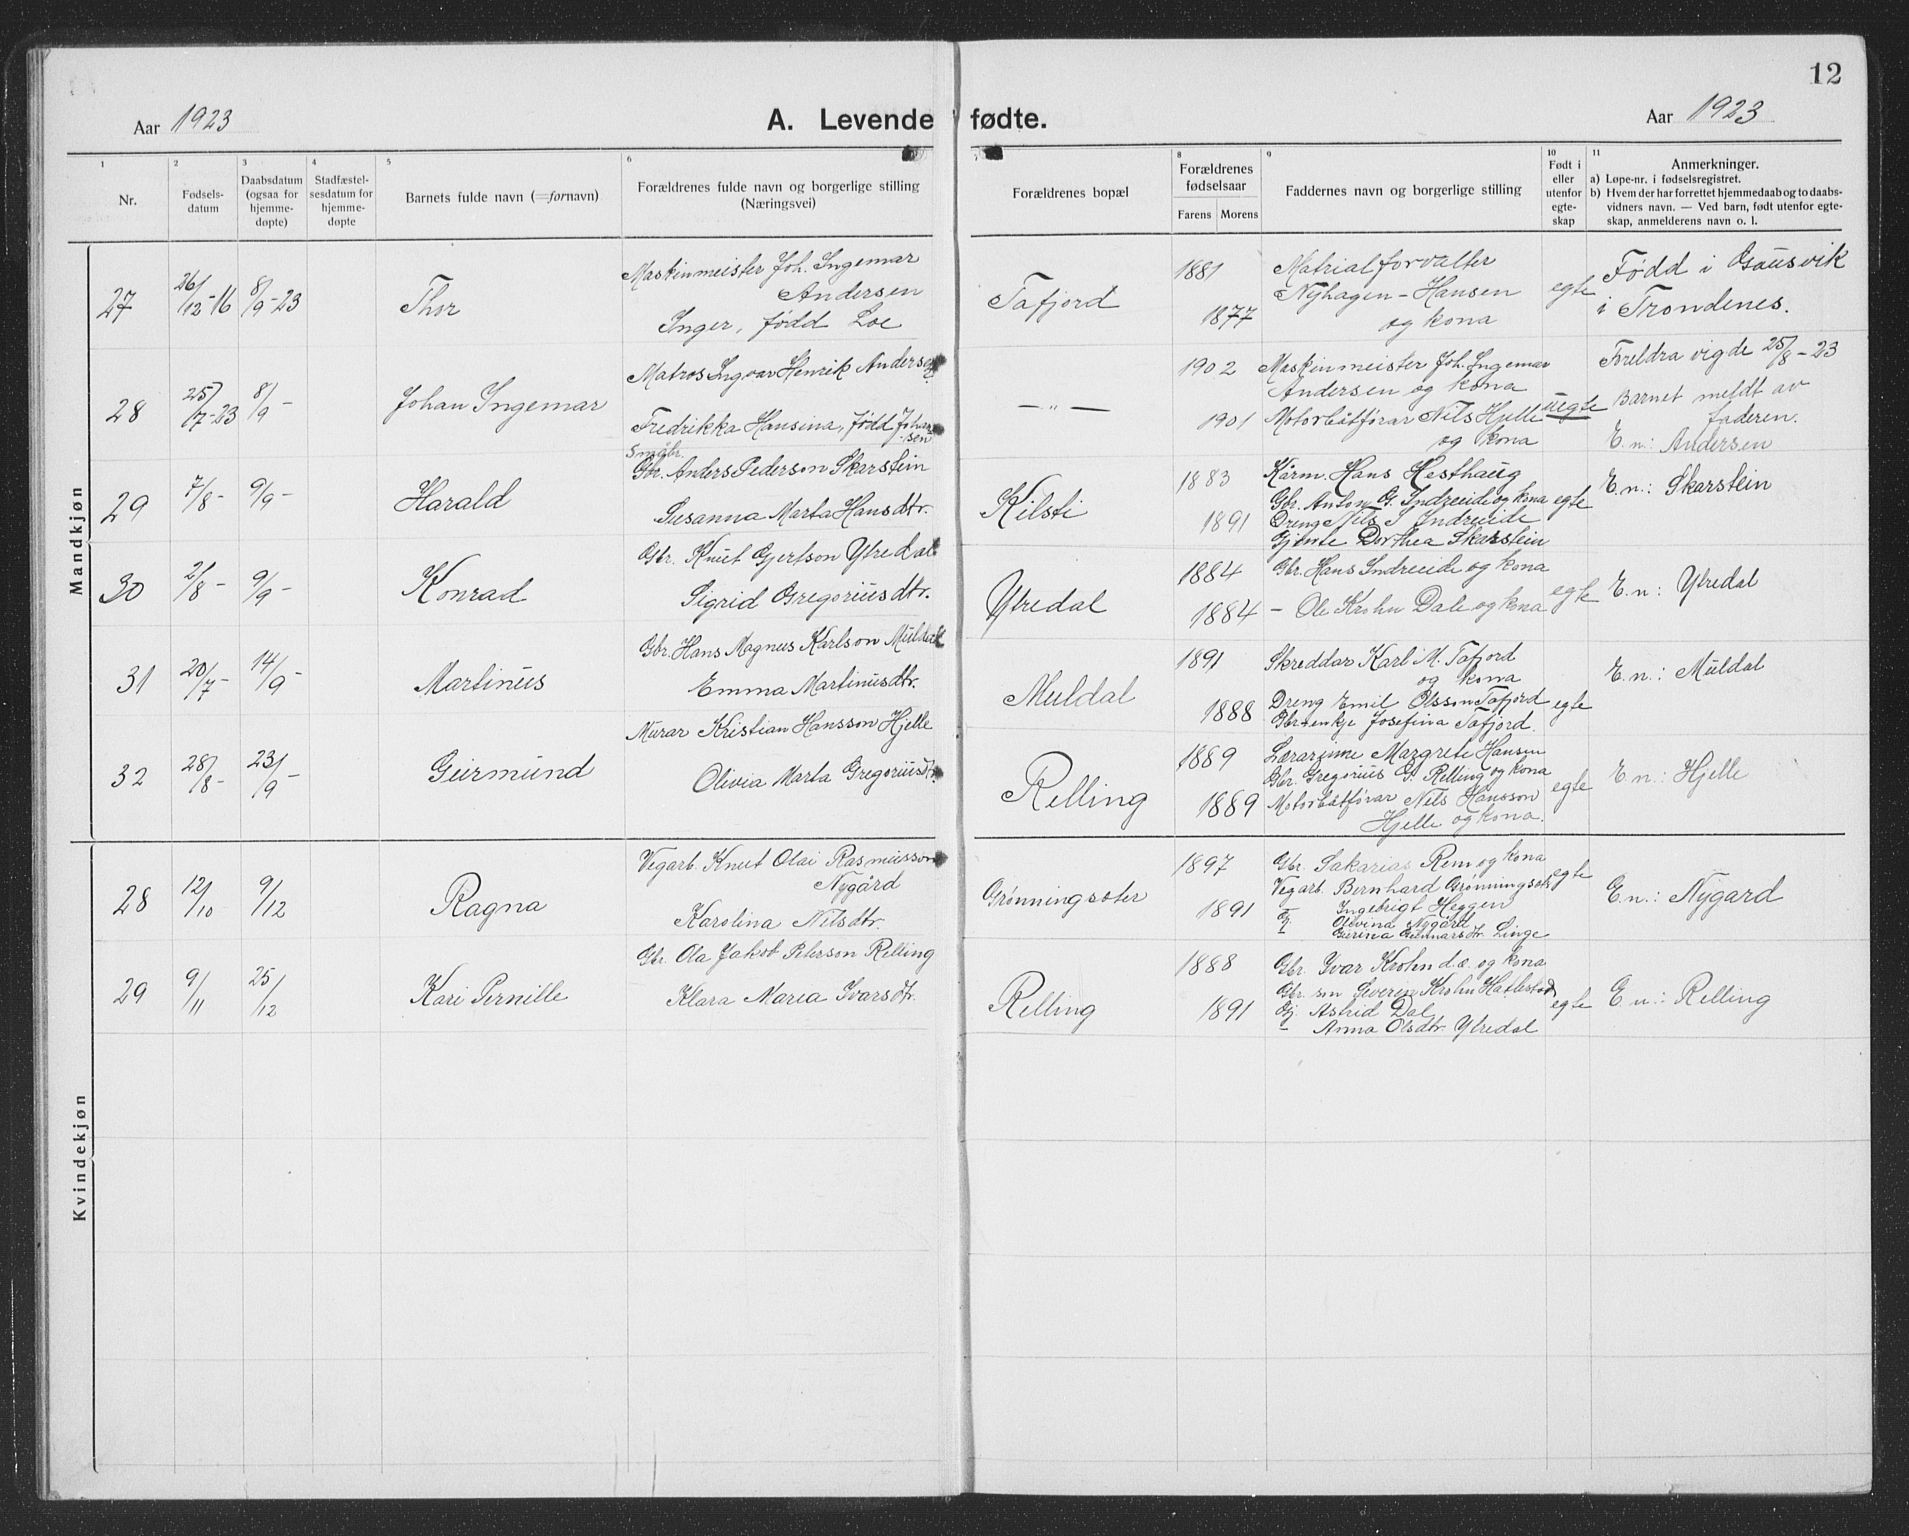 12
Aar 1923
A. Levende fødte.
Aar 1923
1 2 3 4 5 6 7 8 9 10 11
Nr.
Fødsels-
datum
Daabsdatum
(ogsaa for
hjemme-
døpte)
Stadfæstel-
sesdatum for
hjemme-
døpte
Barnets fulde navn (=fornavn)
Forældrenes fulde navn og borgerlige stilling
(Næringsvei)
Forældrenes bopæl
Forældrenes
fødselsaar
Farens Morens
Faddernes navn og borgerlige stilling
Født i
eller
utenfor
egte-
skap
Anmerkninger.
a) Løpe-nr. i fødselsregistret.
b) Hvem der har forrettet hjemmedaab og to daabs-
vidners navn. — Ved barn, født utenfor egte-
skap, anmelderens navn o. l.
Mandkjøn
27
26/12-16
8/9-23
Thor
Maskinmeister Joh. Ingemar
Andersen
Inger, fødd Loe
Tafjord
1881
1877
Matrialforvalter
Nyhagen-Hansen
og kona
egte
Fødd i
i Trondenes.
28
25/7-23
8/9-
Johan Ingemar
Matros Ingvar Henrik Andersen
Fredrikka Hansina, fødd Johan-
sen
— „ —
1902
1901
Maskinmeister Joh. Ingemar
Andersen og kona
Motorbåtførar Nils Hjelle
og kona
uegte
Foreldra vigde 25/8-23
Barnet meldt av
faderen.
E. n.: Andersen
29
7/8-
9/9-
Harald
Småbr.
Gbr. Anders Pederson Skarstein
Susanna Marta Hansdtr.
Kilsti
1883
1891
Kårm. Hans Hesthaug
Gbr. Anton G. Indreeide og kona
Dreng Nils J Indreeide
Gjente Dorthea Skarstein
egte
E. n.: Skarstein
30
2/8-
9/9-
Konrad
Gbr. Knut Gjertson Ytredal
Sigrid Gregoriusdtr.
Ytredal
1884
1884
Gbr. Hans Indreeide og kona
— Ole Krohn Dale og kona
egte
E. n: Ytredal
31
20/7-
14/9-
Martinus
Gbr. Hans Magnus Karlson Muldal
Emma Martinusdtr.
Muldal
1891
1888
Skreddar Karl M. Tafjord
og kona
Dreng Emil Olsson Tafjord
Gbr.enkje Josefina Tafjord.
egte
E. n.: Muldal
32
28/8-
23/9-
Geirmund
Murar Kristian Hansson Hjelle
Olivia Marta Gregoriusdtr.
Relling
1889
1889
Lærarinne Margrete Hansen
Gbr. Gregorius G. Relling og kona
Motorbåtførar Nils Hansson
Hjelle og kona.
egte
E. n.: Hjelle
Kvindekjøn
28
12/10
9/12
Ragna
Vegarb. Knut Olai Rasmusson
Nygård
Karolina Nilsdtr.
Grønningsæter
1897
1891
Gbr. Sakarias Rem og kona
Vegarb. Bernhard Grønningsæter
Ingebrigt Heggen
Olevina Nygård
Gurina Gunnarsdtr. Linge
egte
E. n.: Nygard
29
9/11
25/12
Kari Pernille
Gbr. Ola Jakob Peterson Relling
Klara Maria Ivarsdtr.
Relling
1888
1891
Gbr. Ivar Krohn d.æ. og kona
Gbr. søn Severin Krohn Hatlestad
Gj. Astrid Dal
Anna Olsdtr. Ytredal
egte
E. n.: Relling